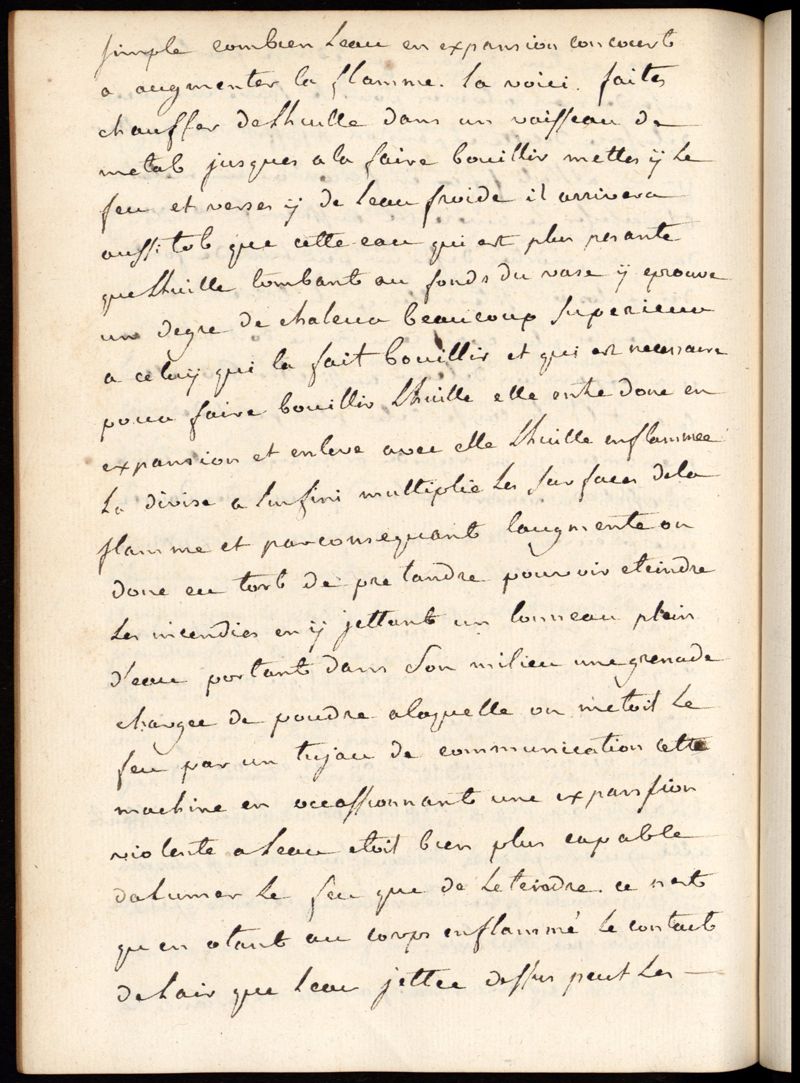 simple combien Leau en expansion concourt
a augmenter la flamme. La voici. faites
chauffer de Lhuille dans un vaisseau de
metal jusques a la faire bouillir mettes ÿ Le
feu et verses ÿ de Leau froide il arrivera
aussi tot que cette eau qui est plus pesante
que Lhuille tombant au fonds du vase ÿ eprouve
un degre de chaleur beaucoup Superieur
a celuÿ qui la fait bouillir et qui est necessaire
pour faire bouillir Lhuille elle entre donc en
expansion et enleve avec elle Lhuille enflammee
La divise a Linfini multiplie Les Surfaces dela
flamme et par consequant laugmente on
donc eu tort de pretandre pouvoir eteindre
Les incendies en ÿ jettant un tonneau plein
d'eau portant dans Son milieu une grenade
chargee de poudre alaquelle on metoit Le
feu par un tujau de communication cette
machine en occassionnant une expansion
violente a Leau etoit bien plus capable
dalumer Le feu que de Leteindre. ce nest
qu'en otant au corps enflammé Le contact
de Lair que Leau jettee dessus peut Les